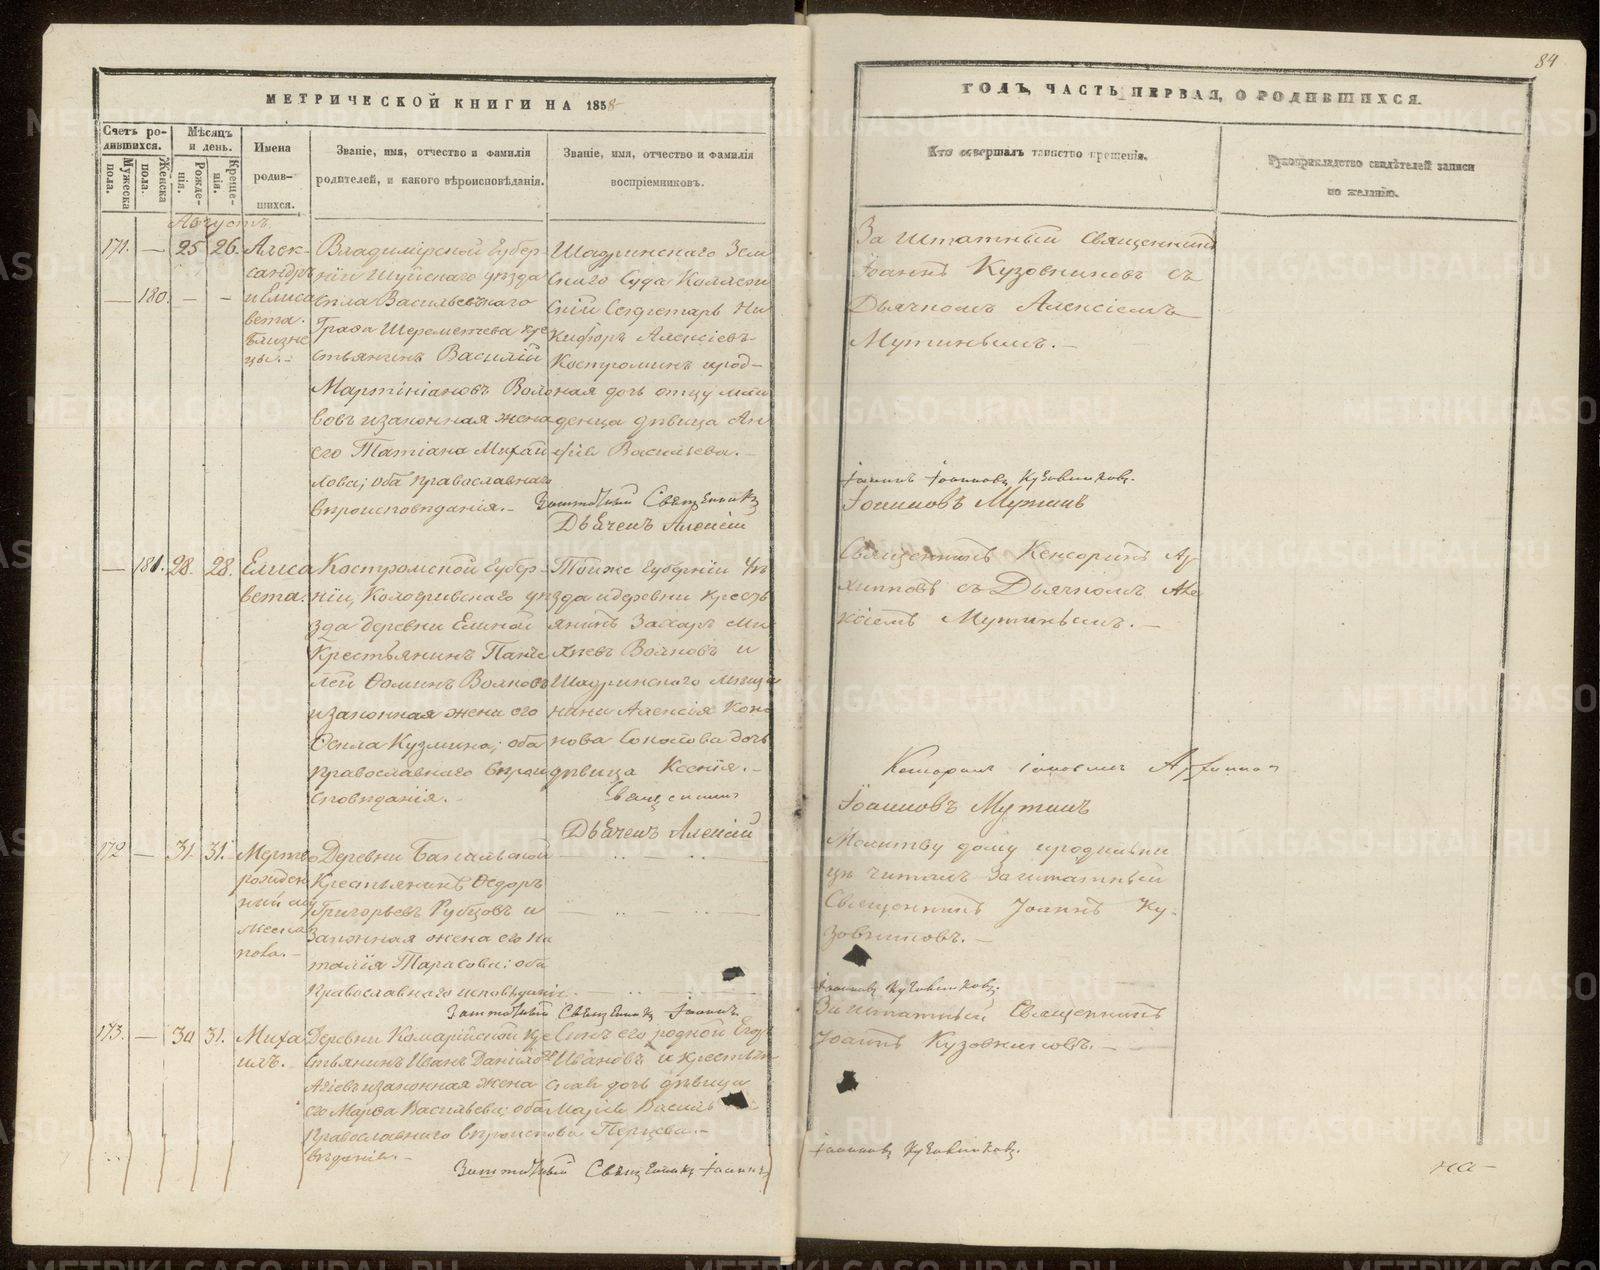 84
МЕТРИЧЕСКОЙ КНИГИ НА 1858
ГОДЪ, ЧАСТЬ ПЕРВАЯ, О РОДИВШИХСЯ.
Счетъ родившихся.
Мужеска пола.
Женска пола.
Мѣсяцъ и день.
Рожденія.
Крещенія.
Имена родившихся.
Званіе, имя, отчество и фамилія
родителей, и какого вѣроисповѣданія.
Званіе, имя, отчество и фамилія
воспріемниковъ.
Кто совершалъ таинство крещенія.
Рукоприкладство свидѣтелей записи
по желанію.
Августъ
171. — 25 26.
— 180. — —
Алек-
сандръ
и Елиса
вета.
близне
цы.-
Владимірской Губер-
ніи Шуйскаго уѣзда
села Васильевскаго
Графа Шереметева кре
стьянинъ Василій
Мартиніановъ
вовъ и законная жена
его Татіана Михай
лова; оба православнаго
вѣроисповѣданія.-
Шадринскаго Зем
скаго Суда Коллеж
скій Секретарь Ни
кифоръ Алексѣевъ
Костроминъ и род-
ная дочь отцу мла
денца дѣвица Ан
Васильева.-
За штатный Священникъ
Іоаннъ Кузовниковъ съ
Дьячкомъ Алексіемъ
Мутинымъ.-
Заштатный Священникъ
Іоаннъ Іоанновъ Кузовниковъ.
Дьячекъ Алексій
Іоанновъ Мутинъ
— 181. 28. 28.
Елиса
вета.
Костромской Губер-
ніи, Кологривскаго уѣ
зда деревни Елиной
Крестьянинъ Панте
лей Фоминъ Волковъ
и законная жена его
Фекла Кузмина; оба
православнаго вѣрои
сповѣданія.-
Тойже Губерніи уѣ
зда и деревни кресть
янинъ Захаръ Ми
хѣевъ Волковъ и
Шадринскаго мѣща
нина Алексія Коно
нова дочь
дѣвица Ксенія.-
Священникъ Кенсоринъ Ар
хиповъ съ Дьячкомъ Але
ксіемъ Мутинымъ.-
Священникъ
Кенсоринъ
Дьячекъ Алексій
Іоанновъ Мутинъ
172 — 31. 31.
Мертво
рожден
ный му
жеска
пола.-
Деревни
Крестьянинъ Ѳедоръ
Григорьевъ Рубцовъ и
Законная жена его На
талія Тарасова; оба
Православнаго исповѣданія.
Молитву дому и родильни
цѣ читалъ Заштатный
Священникъ Іоаннъ Ку-
зовниковъ.-
Заштатный Священникъ Іоаннъ
Іоанновъ Кузовниковъ.
173. — 30 31.
Миха
илъ.-
Деревни Комарійской Кре
стьянинъ Иванъ Данило
и законная жена
его Марѳа Васильева; оба
Православнаго вѣроиспо
вѣданія.-
Сынъ его родной Егоръ
Ивановъ и крестьян
ская дочь дѣвица
Марія
Перцева.-
Заштатный Священникъ
Іоаннъ Кузовниковъ.-
Заштатный Священникъ Іоаннъ
Іоанновъ Кузовниковъ.
на-
METRIKI.GASO-URAL.RU